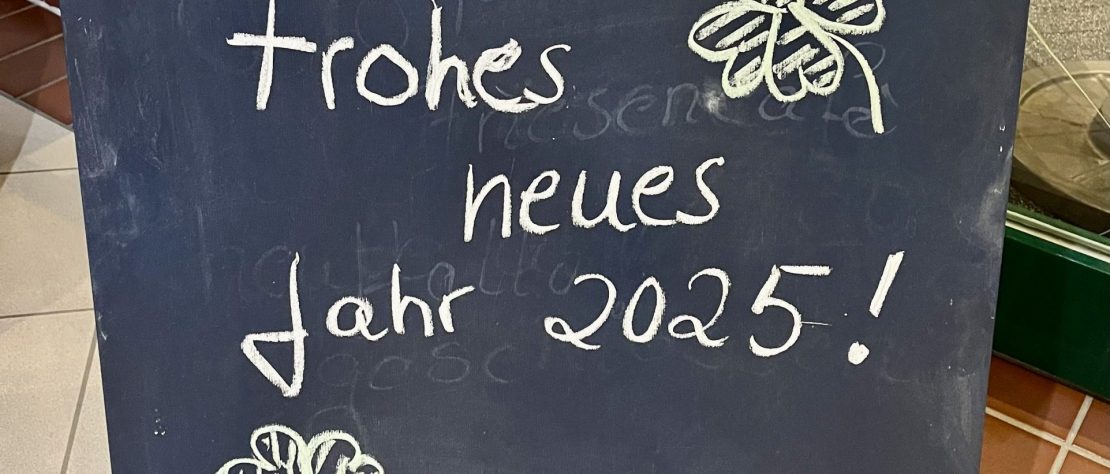 Frohes
neues
Jahr 2025!